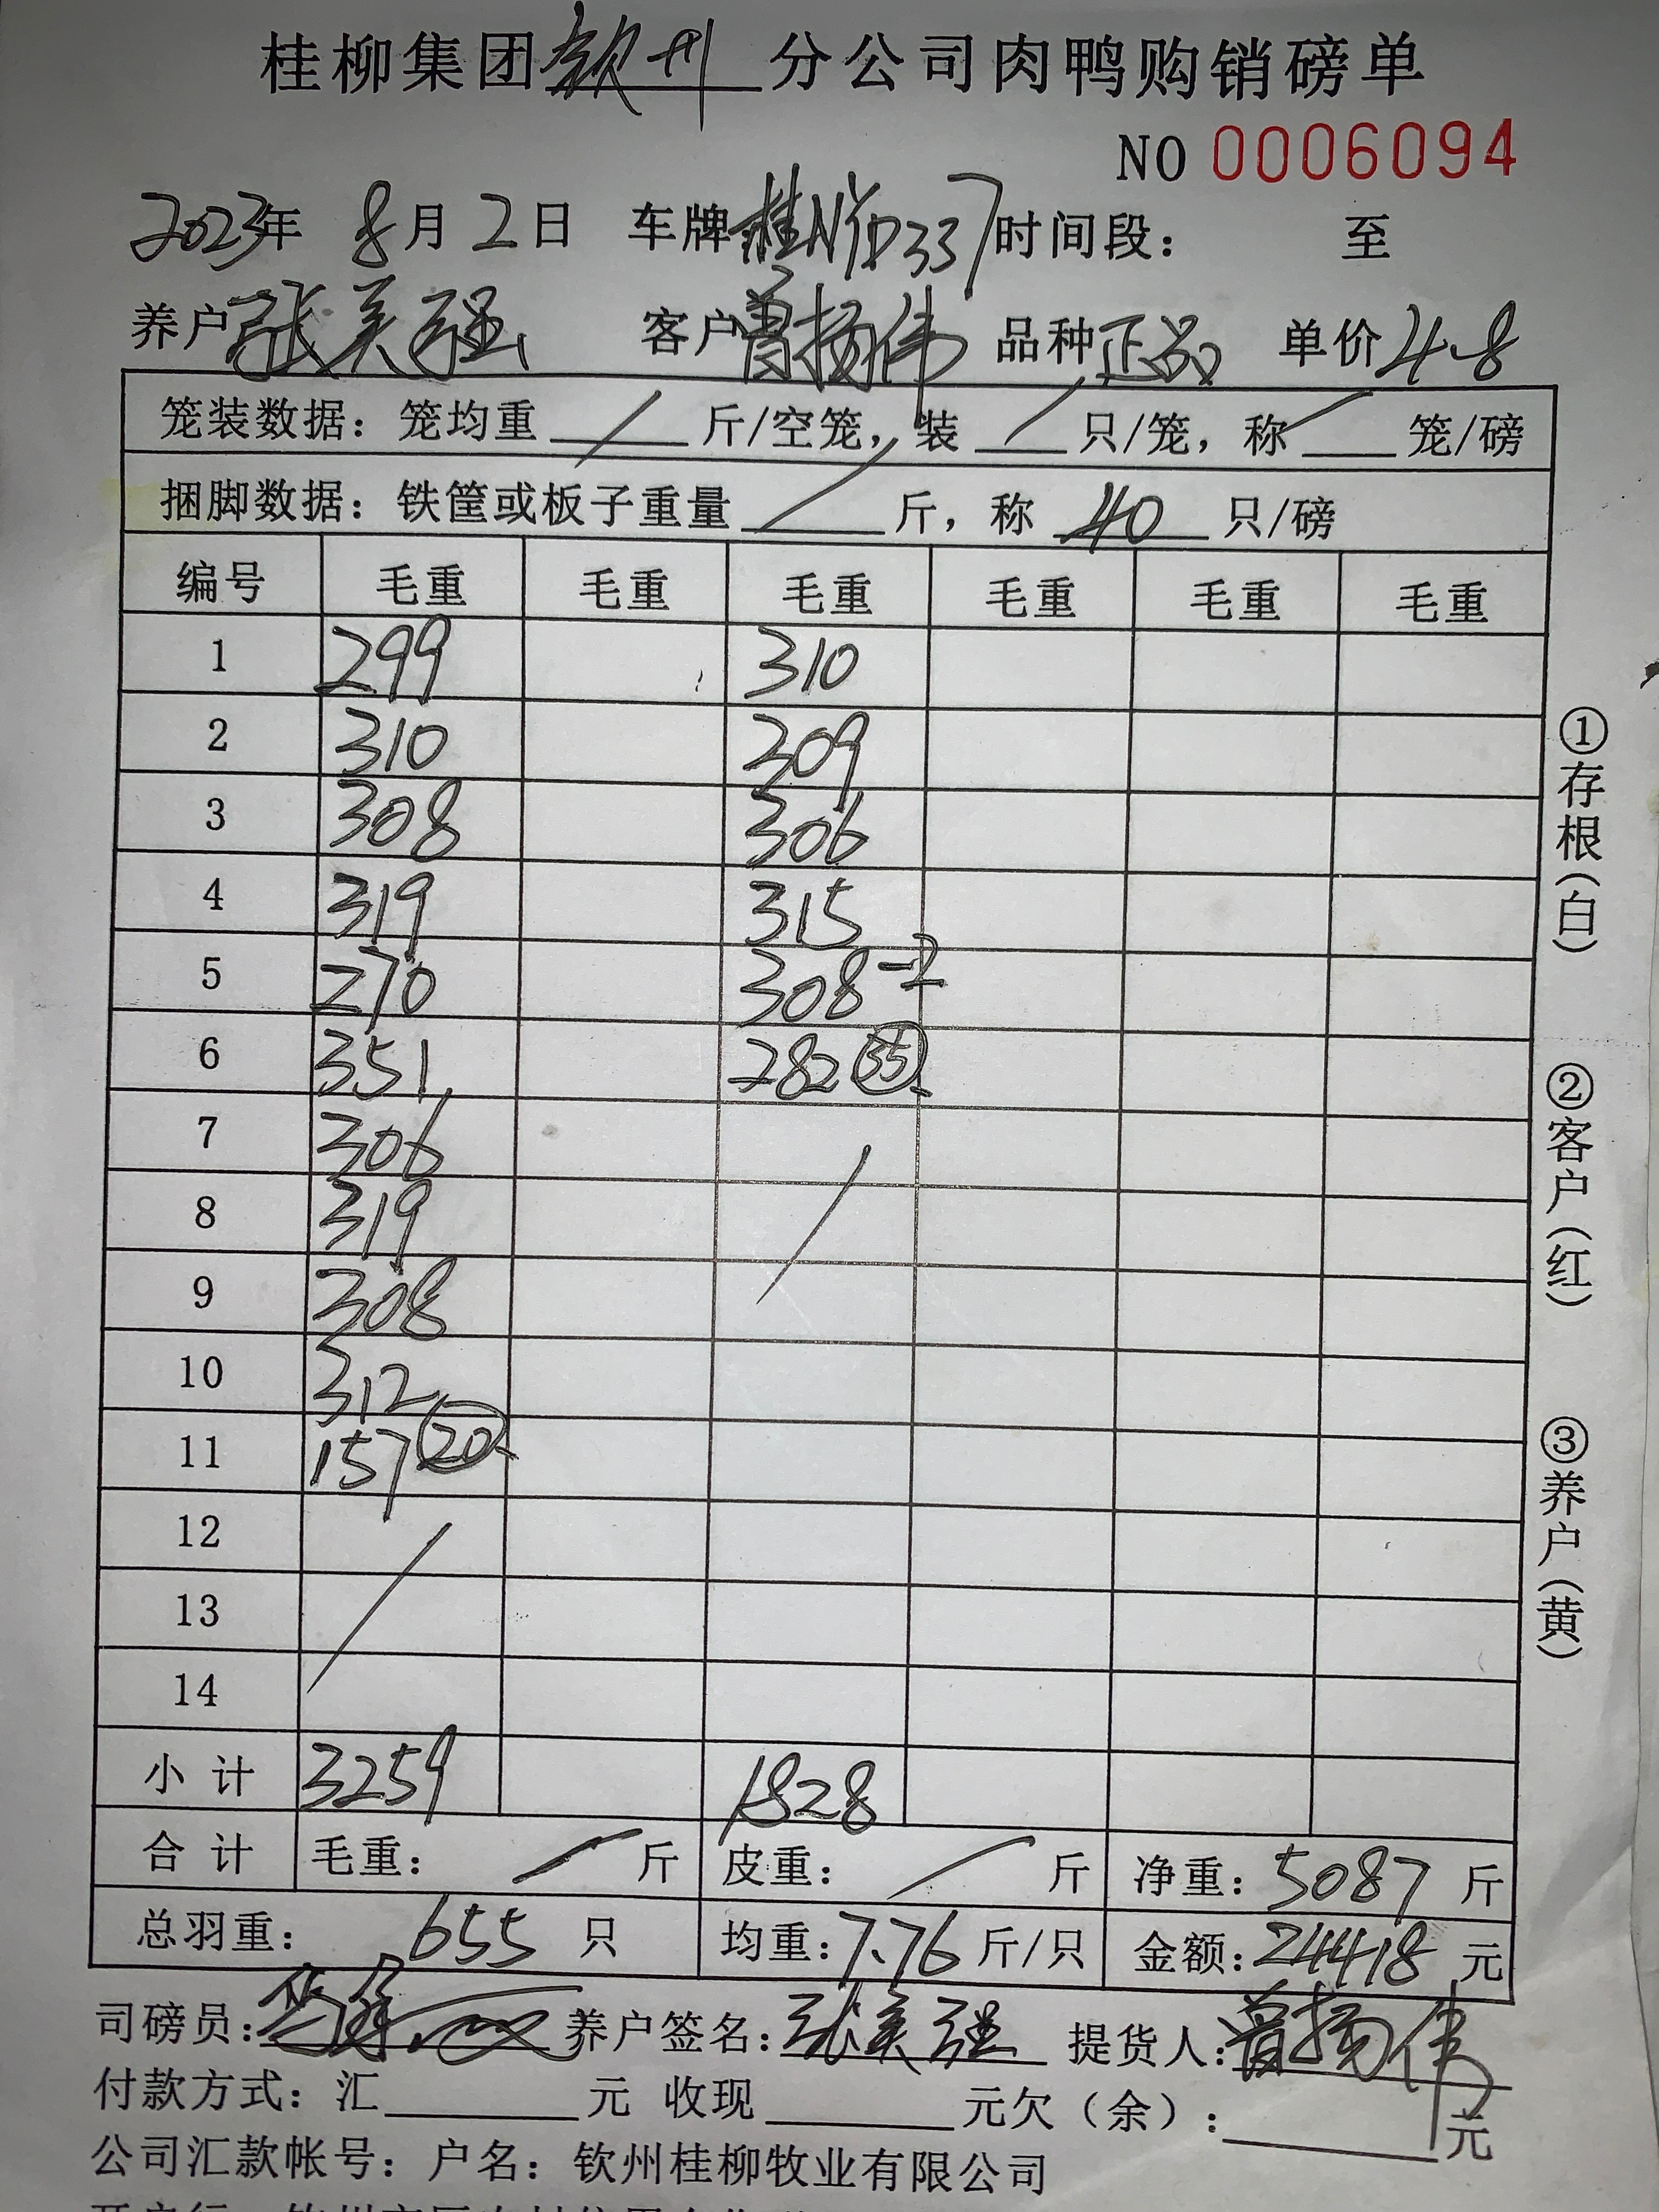 桂柳集团钦州分公司肉鸭购销磅单
NO 0006094
2023年 8月2日 车牌桂NYD337时间段: 至
养户张美强 客户曾扬伟 品种正品 单价4.8
笼装数据:笼均重 / 斤/空笼,装 / 只/笼,称 / 笼/磅
捆脚数据:铁筐或板子重量 / 斤,称 40 只/磅
编号 毛重 毛重 毛重 毛重 毛重 毛重
1 299 310
2 310 309
3 308 306
4 319 315
5 270 308-2
6 351 282 35
7 306
8 319
9 308
10 312
11 157 20
12
13
14
小计 3259 1828
合计 毛重: / 斤 皮重: / 斤 净重:5087斤
总羽重: 655 只 均重:7.76斤/只 金额:24418元
司磅员: 养户签名:张美强 提货人:曾扬伟
付款方式:汇 元 收现 元欠(余): 元
公司汇款帐号:户名:钦州桂柳牧业有限公司
①存根(白)
②客户(红)
③养户(黄)